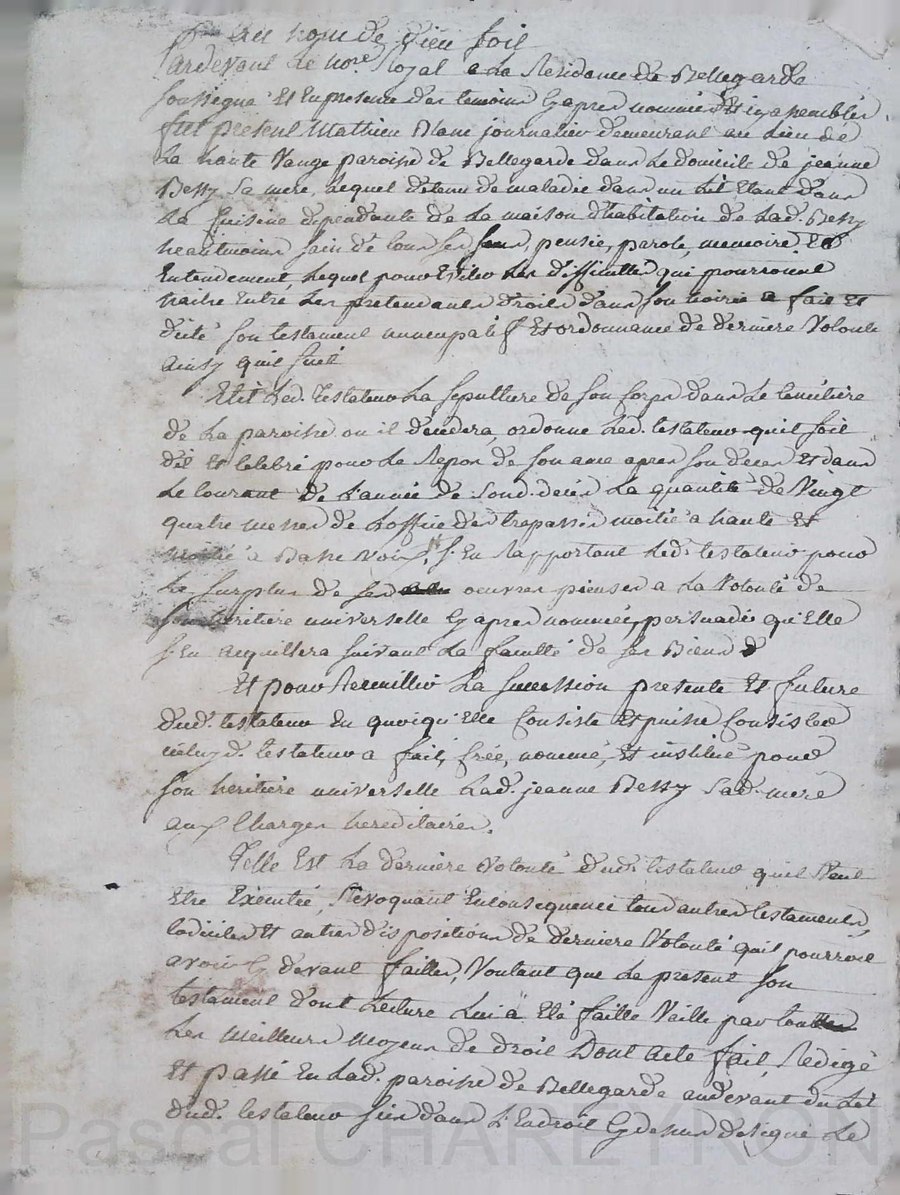 Au nom de Dieu soit
Pardevant Le Nore Royal a La Residance de Bellegarde
soussigné Et En presence des temoins Cy apres nommés Et
fut present Mathieu Blanc journalier demeurant au Lieu de
La haute Vauge paroisse de Bellegarde dans Le domicile de jeanne
Bessy Sa mere, Lequel detenu de maladie dans un Lit Etant dans
La Cuisine dependante de La maison d'habitation de Lad. Bessy
neantmoins sain de tous ses sens, pensée, parole, memoire Et
Entendement, Lequel pour Eviter Les difficultés qui pourroient
naitre Entre Les pretendants droits dans son hoirie a fait Et
dicté son testament nuncupatif Et ordonnance de derniere Volonté
ainsy quil suit
Elit Led. testateur La sepulture de son Corps dans Le Cimitiere
de La paroisse ou il decedera, ordonne Led. testateur quil soit
dit Et Celebré pour Le Repos de son ame apres son deces Et dans
Le Courant de L'année de Sond. deces La quantité de Vingt
quatre messes de L'office des trepassés moitié a haute Et
moitié a Basse Voix, s'En Rapportant Led. testateur pour
Le surplus de ses œuvres pieuses a La Volonté de
son heritiere universelle Cy apres nommée, persuadé qu'Elle
s'En acquittera suivant La faculté de ses Biens
Et pour Recuillir La succession presente Et future
dud. testateur En quoi qu'Elle Consiste Et puisse Consister
iceluy d. testateur a fait, créé, nommé, Et institué pour
son heritiere universelle Lad. jeanne Bessy Sad. mere
aux Charges hereditaires.
Telle Est La derniere Volonté dud. testateur quil Veut
Etre Executée, Revoquant En consequence tous autres testaments
Codiciles Et autres dispositions de derniere Volonté quil pourroit
avoir Cy devant faittes, Voulant que Le present son
testament dont Lecture Lui a Eté faitte Vaille par tous
Les meilleurs moyens de droit Dont acte fait, Redigé
Et passé En Lad. paroisse de Bellegarde audevant du Lit
dud. testateur sis dans L'Endroit Cy dessus designé Le
Pascal CHAREYRON